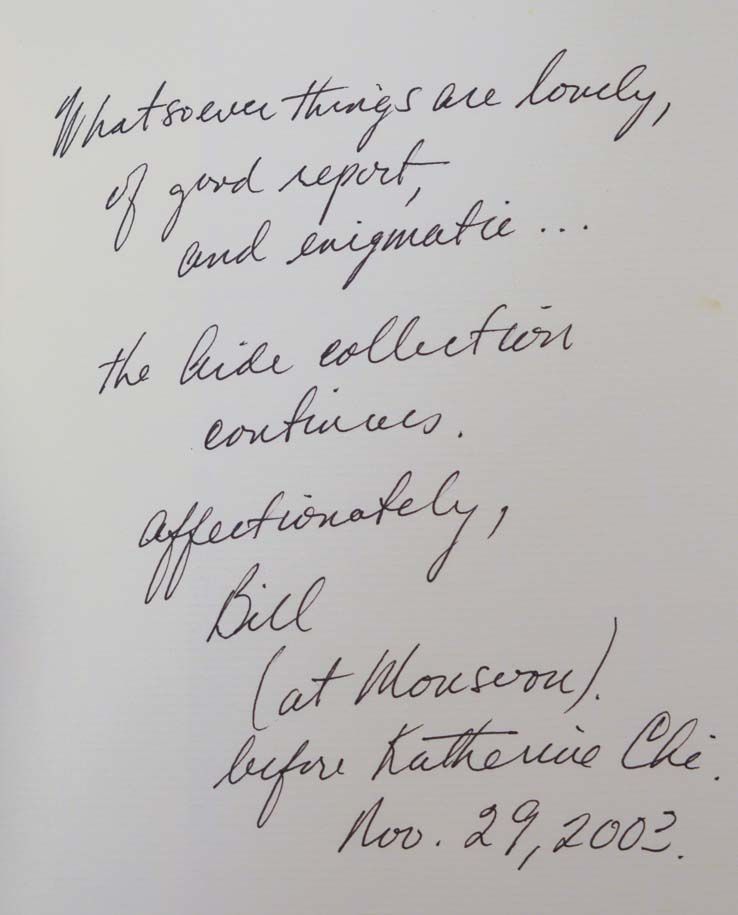 Whatsoever things are lovely,
of good report,
and enigmatic ...
the collection
continues.
Affectionately,
Bill
(at Monsoon).
before Katherine Chi.
Nov. 29, 2003.